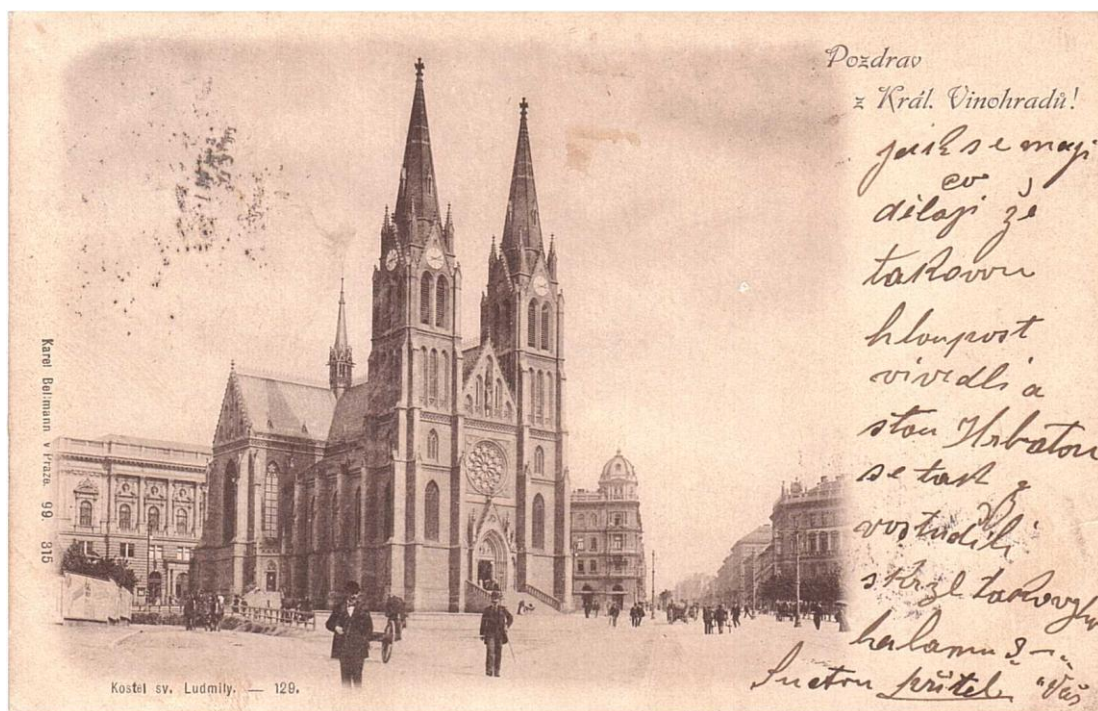 Pozdrav
z Král. Vinohradů!
jak se mají
co
dělají že
takovou
hloupost
vivedli a
stou Hrbatou
se tak
vostudili
takovýho
Váš
přítel
Karel Bellmann v Praze. 99. 315
Kostel sv. Ludmily. — 129.